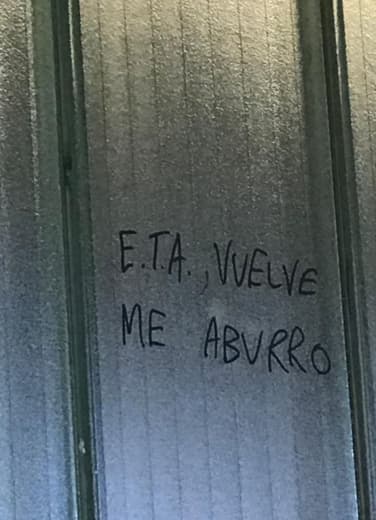 E.T.A., VUELVE
ME ABURRO